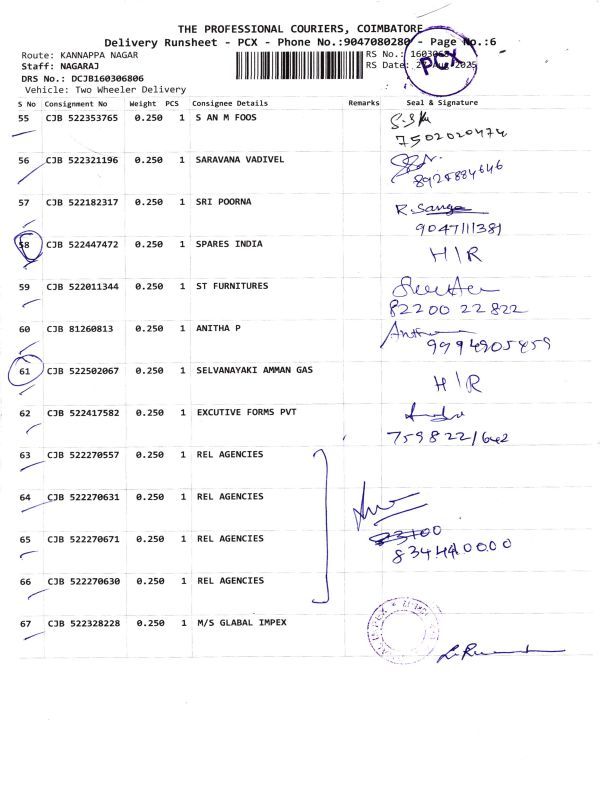 THE PROFESSIONAL COURIERS, COIMBATORE
Delivery Runsheet - PCX - Phone No.:9047080280 - Page No.:6
Route: KANNAPPA NAGAR
RS No.:
Staff: NAGARAJ
RS Date: Aug 2025
DRS No.: DCJB160306806
PCX
Vehicle: Two Wheeler Delivery
S No Consignment No Weight PCS Consignee Details Remarks Seal & Signature
55 CJB 522353765 0.250 1 S AN M FOOS
7502020474
56 CJB 522321196 0.250 1 SARAVANA VADIVEL
8925884646
57 CJB 522182317 0.250 1 SRI POORNA R. Sanga
9047111381
58 CJB 522447472 0.250 1 SPARES INDIA H|R
59 CJB 522011344 0.250 1 ST FURNITURES
82200 22822
60 CJB 81260813 0.250 1 ANITHA P
9994905459
61 CJB 522502067 0.250 1 SELVANAYAKI AMMAN GAS H|R
62 CJB 522417582 0.250 1 EXCUTIVE FORMS PVT
7598221642
63 CJB 522270557 0.250 1 REL AGENCIES
64 CJB 522270631 0.250 1 REL AGENCIES
65 CJB 522270671 0.250 1 REL AGENCIES
8344400000
66 CJB 522270630 0.250 1 REL AGENCIES
67 CJB 522328228 0.250 1 M/S GLABAL IMPEX